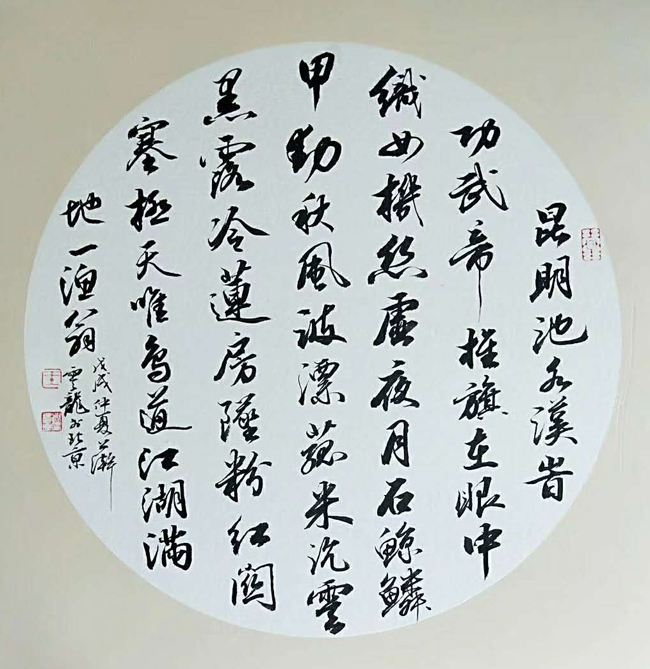 昆明池水漢旹
功武帝旌旗在眼中
織女機絲虛夜月石鯨鱗
甲動秋風波漂菰米沉雲
黑露冷蓮房墜粉紅關
塞極天唯鳥道江湖滿
地一漁翁
戊戌仲夏
雲龍於北京